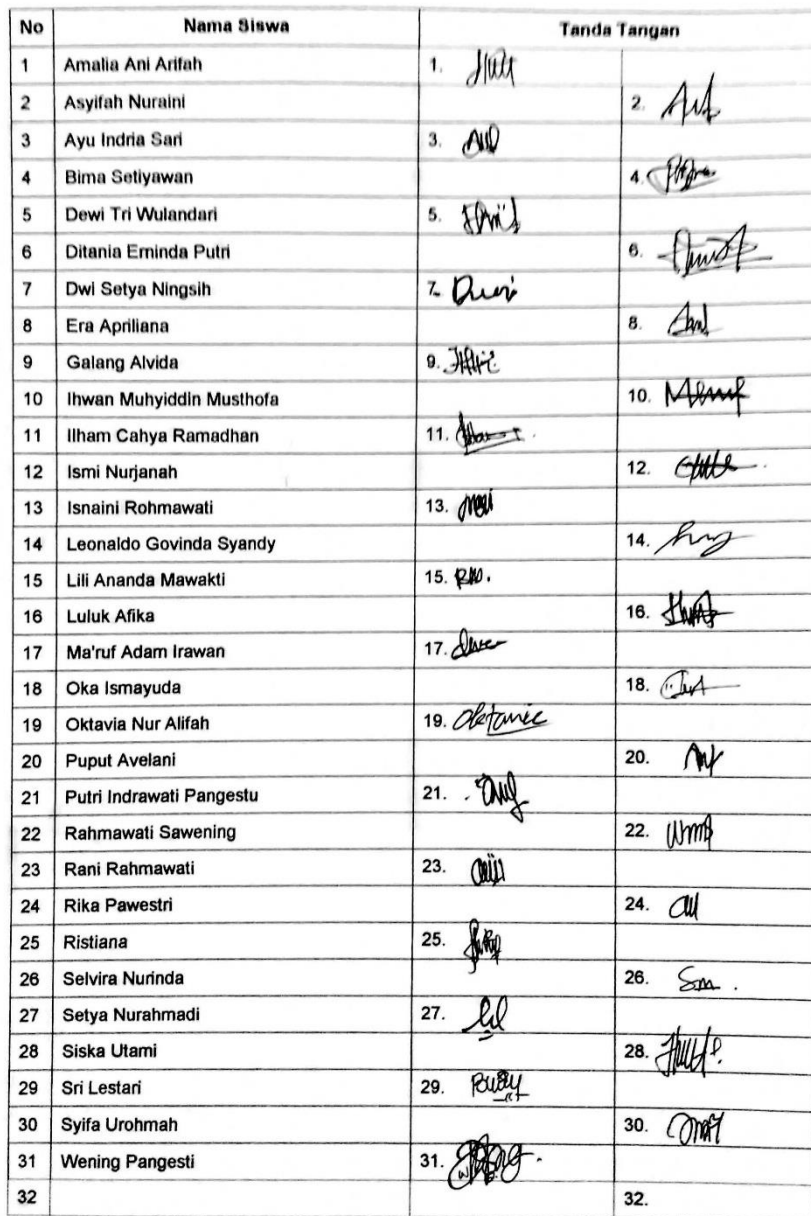 No Nama Siswa Tanda Tangan
1 Amalia Ani Arifah 1.
2 Asyifah Nuraini 2.
3 Ayu Indria Sari 3.
4 Bima Setiyawan 4.
5 Dewi Tri Wulandari 5.
6 Ditania Eminda Putri 6.
7 Dwi Setya Ningsih 7. Dwi
8 Era Apriliana 8.
9 Galang Alvida 9.
10 Ihwan Muhyiddin Musthofa 10.
11 Ilham Cahya Ramadhan 11.
12 Ismi Nurjanah 12.
13 Isnaini Rohmawati 13.
14 Leonaldo Govinda Syandy 14.
15 Lili Ananda Mawakti 15.
16 Luluk Afika 16.
17 Ma'ruf Adam Irawan 17.
18 Oka Ismayuda 18.
19 Oktavia Nur Alifah 19.
20 Puput Avelani 20.
21 Putri Indrawati Pangestu 21.
22 Rahmawati Sawening 22.
23 Rani Rahmawati 23.
24 Rika Pawestri 24.
25 Ristiana 25.
26 Selvira Nurinda 26.
27 Setya Nurahmadi 27.
28 Siska Utami 28.
29 Sri Lestari 29.
30 Syifa Urohmah 30.
31 Wening Pangesti 31.
32 32.